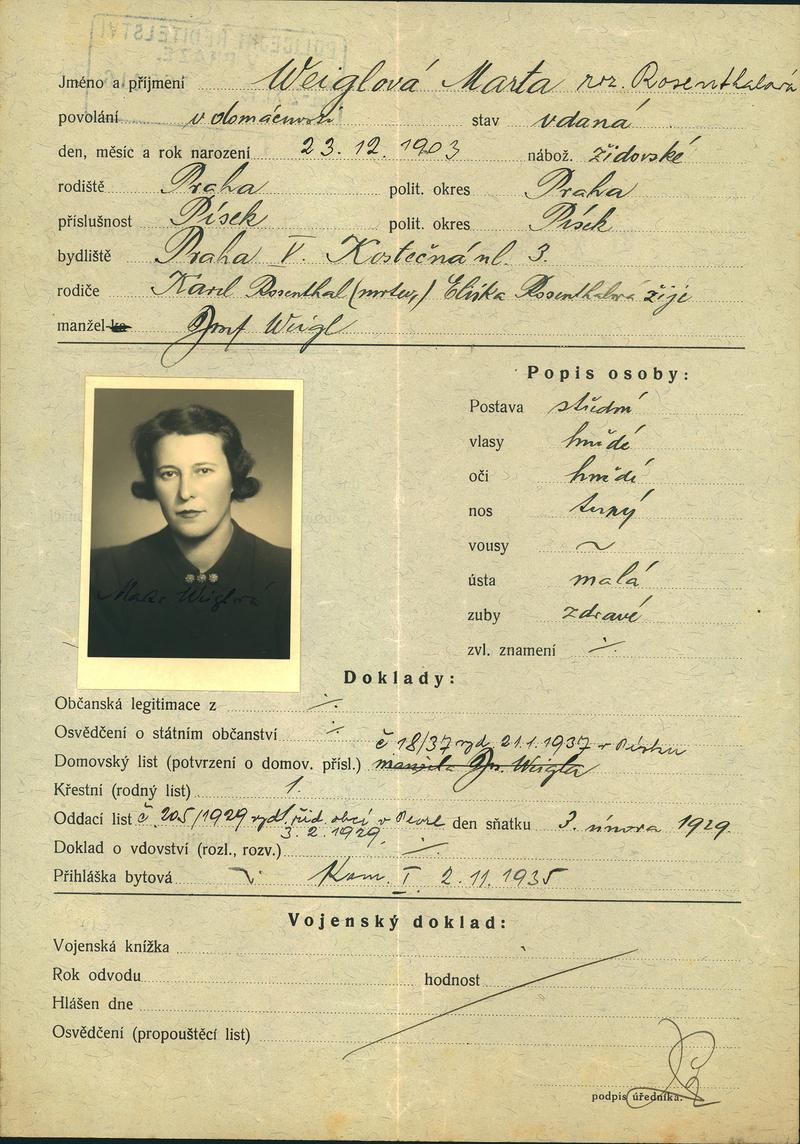 POLICEJNÍ ŘEDITELSTVÍ
V PRAZE.
Jméno a příjmení Weiglová Marta roz. Rosenthalová
povolání v domácnosti stav vdaná
den, měsíc a rok narození 23. 12. 1903 nábož. židovské
rodiště Praha polit. okres Praha
příslušnost Písek polit. okres Písek
bydliště Praha V. Kostečná ul. 3.
rodiče Karel Rosenthal (mrtev,) Eliška Rosenthalová žije
manžel-ka Josef Weigl
Popis osoby:
Postava střední
vlasy hnědé
oči hnědé
nos
vousy ~
ústa malá
zuby zdravé
zvl. znamení ⁒
Marta Weiglová
Doklady:
Občanská legitimace z ⁒
Osvědčení o státním občanství ⁒
č 18/37 vyd. 21.1.1937 v Písku
Domovský list (potvrzení o domov. přísl.) manžela Weigla
Křestní (rodný list) 1.
Oddací list č. 205/1929 vyd. žid. obcí v den sňatku 3. února 1929.
3. 2. 1929.
Doklad o vdovství (rozl., rozv.) ⁒
Přihláška bytová Kom. I. 2. 11. 1935
Vojenský doklad:
Vojenská knížka
Rok odvodu hodnost
Hlášen dne
Osvědčení (propouštěcí list)
podpis úředníka.